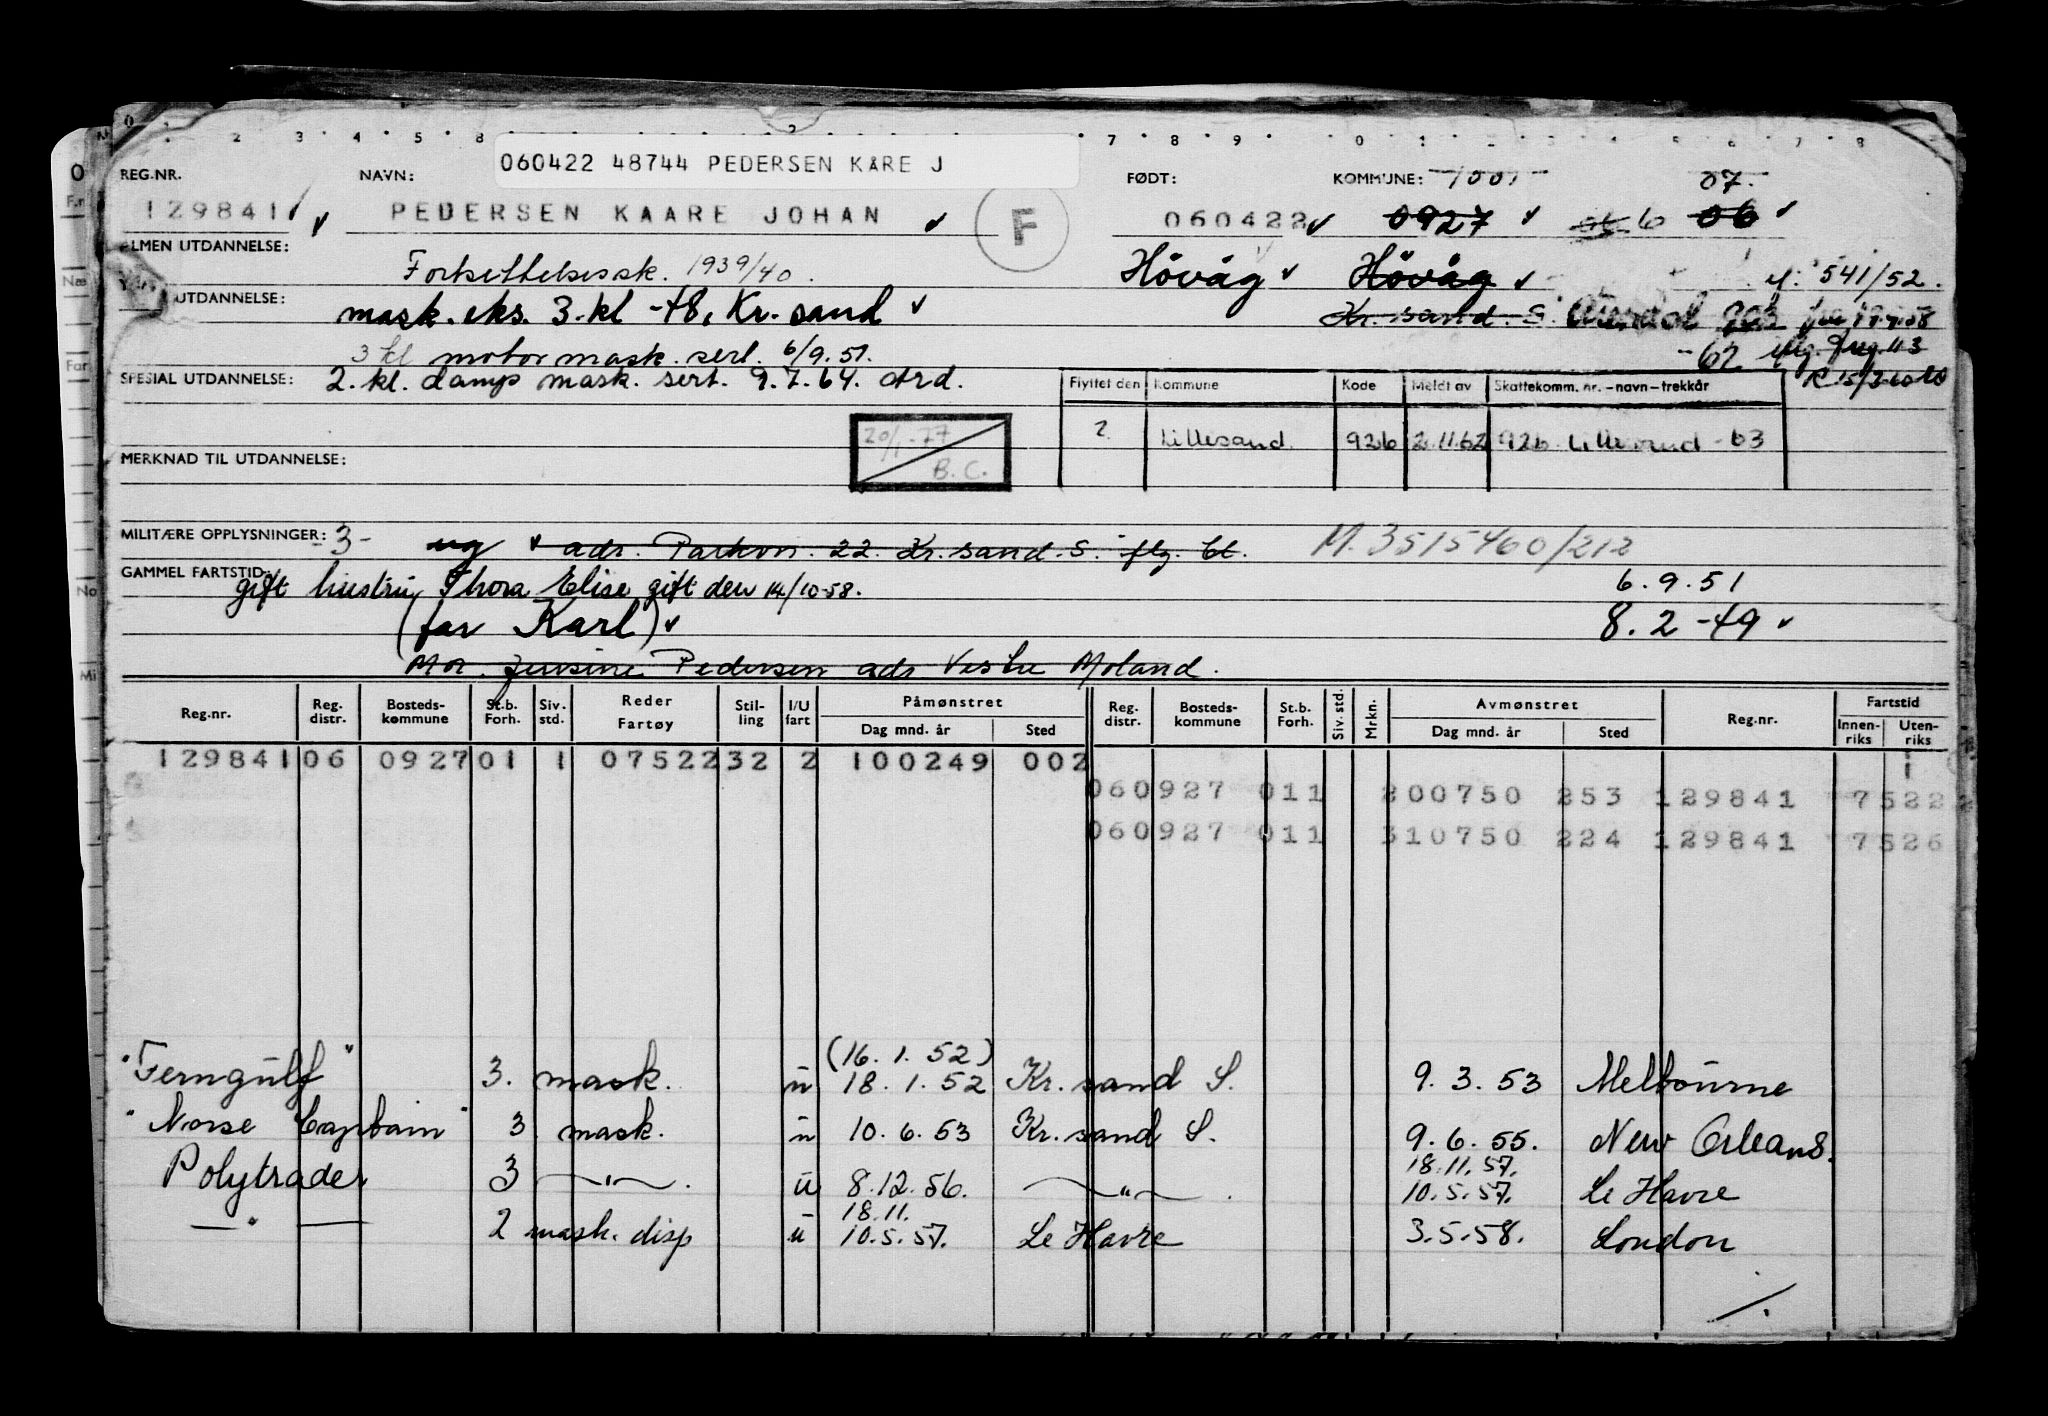 060422 48744 PEDERSEN KÅRE J
REG.NR. NAVN: FØDT: KOMMUNE: 1001 07.
129841 PEDERSEN KAARE JOHAN F 060422 0927 06
ALMEN UTDANNELSE: Fortsettelsessk. 1939/40. Hövåg Hövåg 541/52.
UTDANNELSE: mask. eks. 3. kl -48, Kr. sand Kr. sand. S. Arendal 903
3 kl motor mask. sert. 6/9.51. -62
SPESIAL UTDANNELSE: 2. kl. damp mask. sert. 9.7.64. Ard.
Flyttet den Kommune Kode Meldt av Skattekomm. nr. – navn – trekkår
? Lillesand 926 2.11.62 926 Lillesand -63
20/1-77 B.C.
MERKNAD TIL UTDANNELSE:
MILITÆRE OPPLYSNINGER: -3- ug adr. Parkvn. 22. Kr. sand. S. M. 3515460/212
GAMMEL FARTSTID: gift hustru Thora Elise gift den 14/10-58. 6.9.51
(far Karl) 8.2-49
Mor. Pedersen adr Vestre Moland.
Reg.nr. Reg. distr. Bosteds- kommune St.b. Forh. Siv. std. Reder Fartøy Stil- ling I/U fart Påmønstret Dag mnd. år Sted Reg. distr. Bosteds- kommune St.b. Forh. Siv. std. Mrkn. Avmønstret Dag mnd. år Sted Reg.nr. Fartstid Innen- riks Uten- riks
129841 06 0927 01 1 07522 32 2 100249 002
060927 011 200750 253 129841 7522
060927 011 310750 224 129841 7526
"Ferngulf" 3. mask. u (16.1.52) 18.1.52 Kr. sand S. 9.3.53 Melbourne
"Norse Captain" 3 mask. u 10.6.53 Kr. sand S. 9.6.55. New Orleans.
Polytrader 3 —"—. u 8.12.56. —"—. 18.11.57. 10.5.57. Le Havre
—"— 2 mask. disp u 18.11. 10.5.57. Le Havre 3.5.58. London